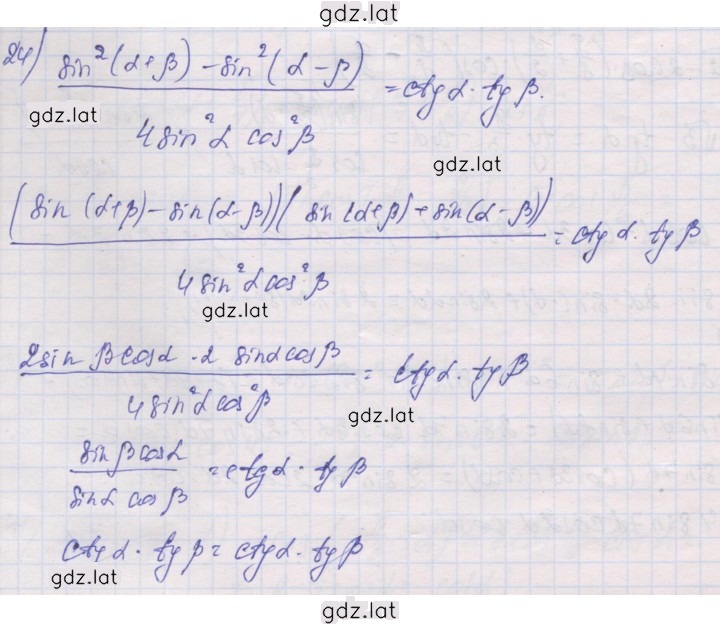 gdz.lat
24) (sin²(α+β) - sin²(α-β)) / (4sin²α cos²β) = ctgα · tgβ.
gdz.lat
gdz.lat
((sin(α+β) - sin(α-β))(sin(α+β) + sin(α-β))) / (4sin²α cos²β) = ctgα · tgβ
gdz.lat
(2sinβcosα · 2 sinαcosβ) / (4sin²αcos²β) = ctgα · tgβ
gdz.lat
(sinβcosα) / (sinα cosβ) = ctgα · tgβ
ctgα · tgβ = ctgα · tgβ
gdz.lat
gdz.lat